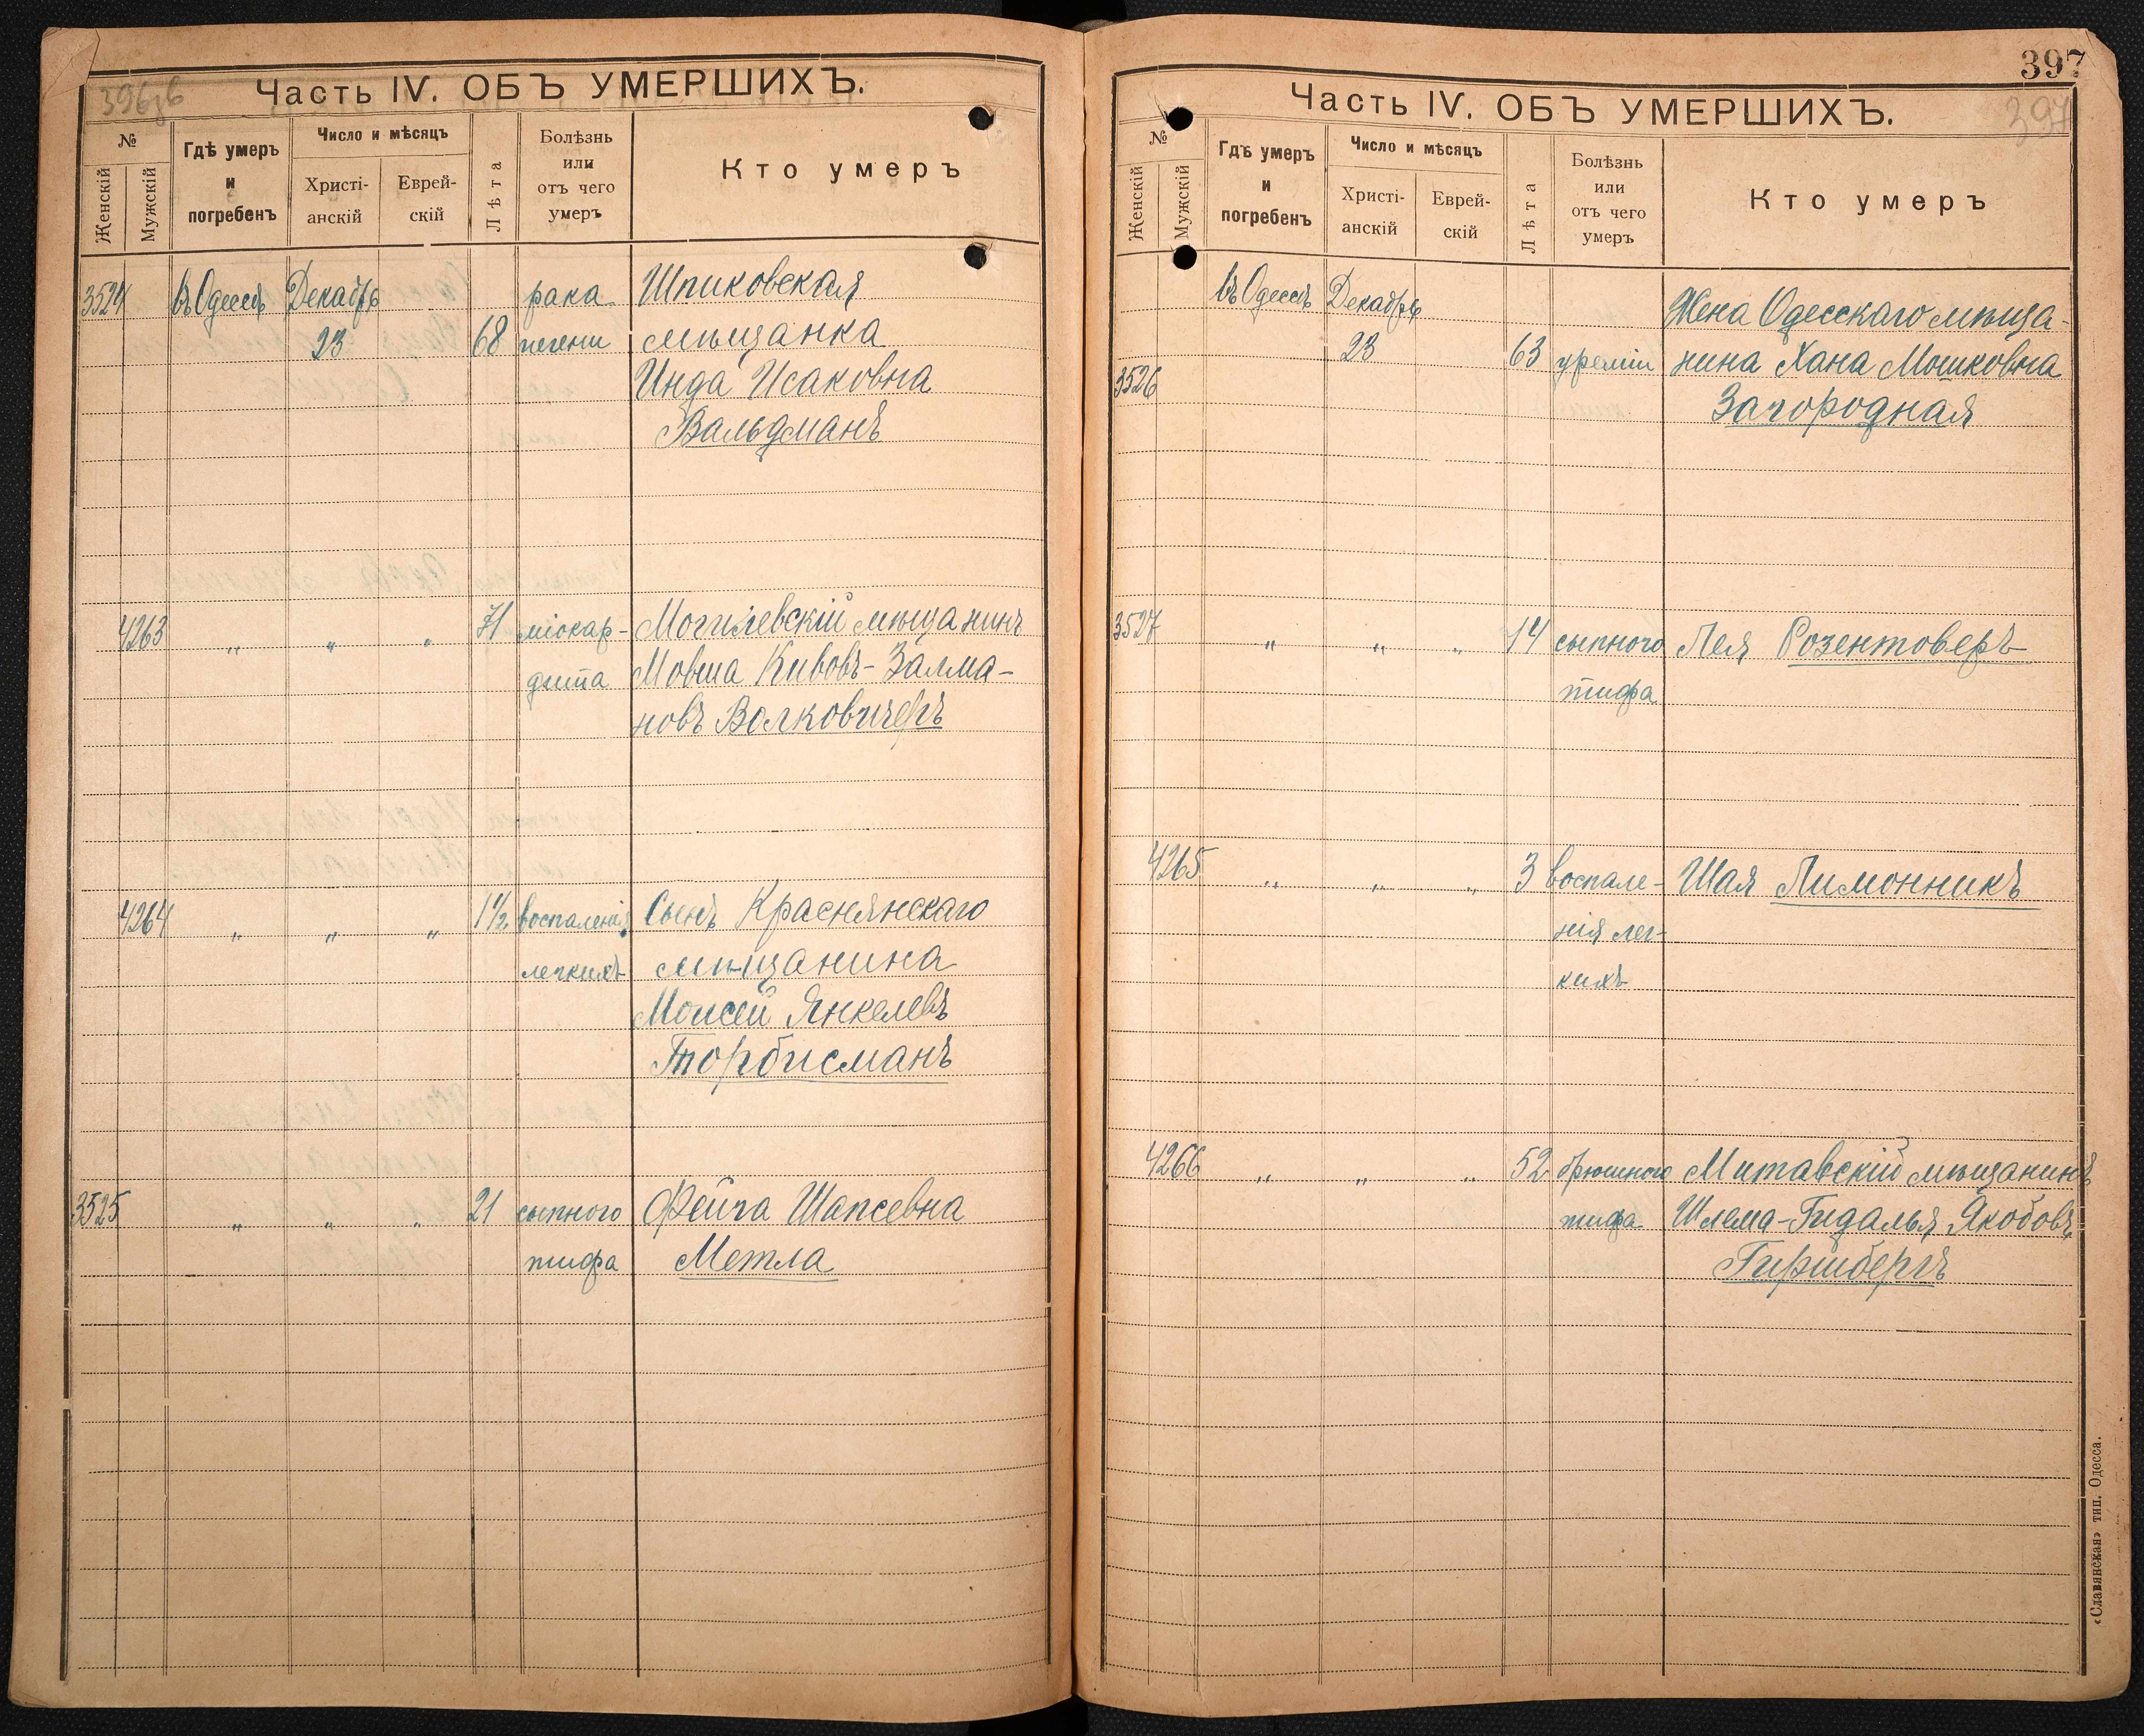 396зв
Часть IV. ОБЪ УМЕРШИХЪ.
№
Женскій
Мужскій
Гдѣ умеръ
и
погребенъ
Число и мѣсяцъ
Христі-
анскій
Еврей-
скій
Лѣта
Болѣзнь
или
отъ чего
умеръ
Кто умеръ
3524 въ Одессѣ Декабрь рака Шпиковская
23 68 печени мѣщанка
Инда Исаковна
Вальдманъ
4263 „ „ „ 71 міокар- Могилевскій мѣщанинъ
дита Мовша Кивовъ-Залма-
новъ Волковичеръ
4264 „ „ „ 1½ воспаленія Сынъ Краснянскаго
легкихъ мѣщанина
Моисей Янкелевъ
Торбисманъ
3525 „ „ „ 21 сыпного Фейга Шапсевна
тифа Метла
397
Часть IV. ОБЪ УМЕРШИХЪ.
397
№
Женскій
Мужскій
Гдѣ умеръ
и
погребенъ
Число и мѣсяцъ
Христі-
анскій
Еврей-
скій
Лѣта
Болѣзнь
или
отъ чего
умеръ
Кто умеръ
въ Одессѣ Декабрь Жена Одесскаго мѣща-
3526 23 63 уреміи нина Хана Мошковна
Загородная
3527 „ „ „ 14 сыпного Лея Розентоверъ
тифа
4265 „ „ „ 3 воспале- Шая Лимонникъ
нія лег-
кихъ
4266 „ „ „ 52 брюшного Митавскій мѣщанинъ
тифа Шлема-Гидалья Якобовъ
Гиршбергъ
«Славянская» тип. Одесса.